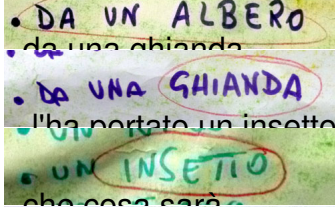 • DA UN ALBERO
da una ghianda
• DA UNA GHIANDA
l'ha portato un insetto
• UN INSETTO
che cosa sarà